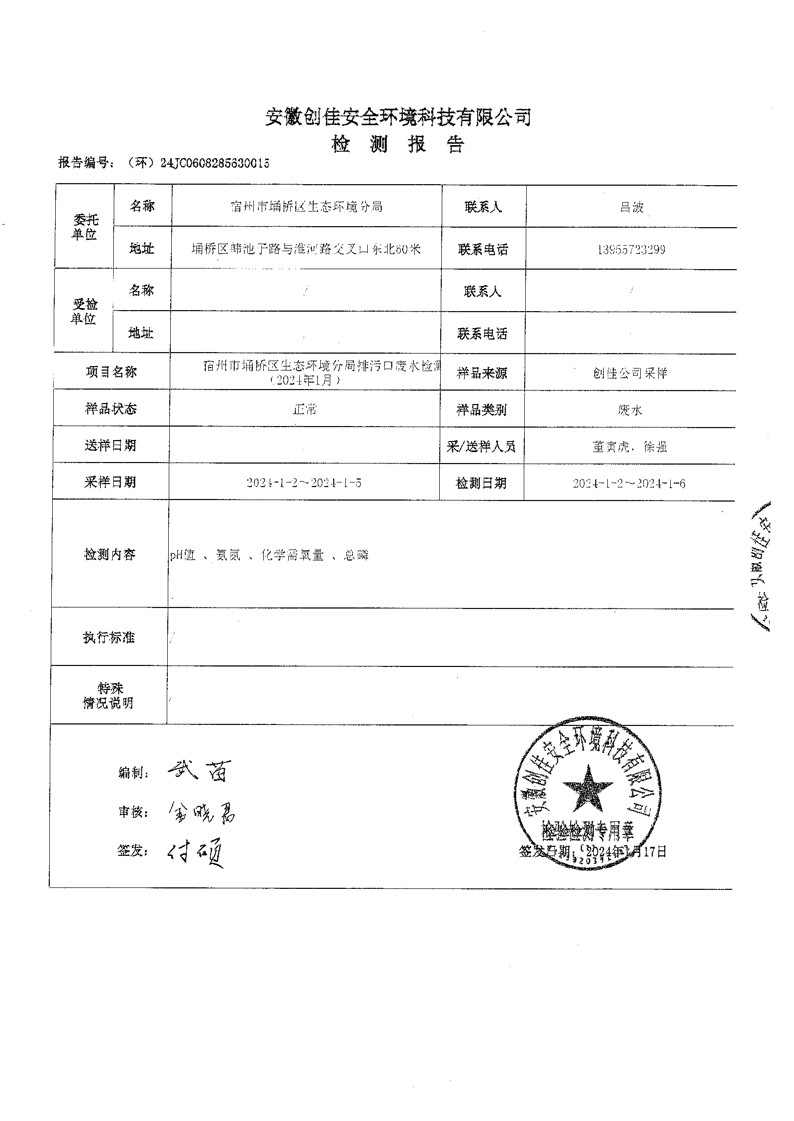 安徽创佳安全环境科技有限公司
检 测 报 告
报告编号：（环）24JC0608285630015
委托单位 名称 宿州市埇桥区生态环境分局 联系人 吕波
地址 埇桥区雪池子路与淮河路交叉口东北60米 联系电话 13955723299
受检单位 名称 / 联系人 /
地址 联系电话
项目名称 宿州市埇桥区生态环境分局排污口废水检测（2024年1月） 样品来源 创佳公司采样
样品状态 正常 样品类别 废水
送样日期 采/送样人员 董寅虎、徐强
采样日期 2024-1-2～2024-1-5 检测日期 2024-1-2～2024-1-6
检测内容 pH值 、氨氮 、化学需氧量 、总磷
执行标准 /
特殊情况说明 /
编制： 武苗
审核： 金晓磊
签发： 付硕
安徽创佳安全环境科技有限公司
检验检测专用章
签发日期：2024年1月17日